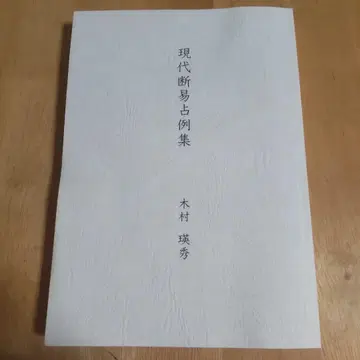 現代断易占例集
木村 瑛秀